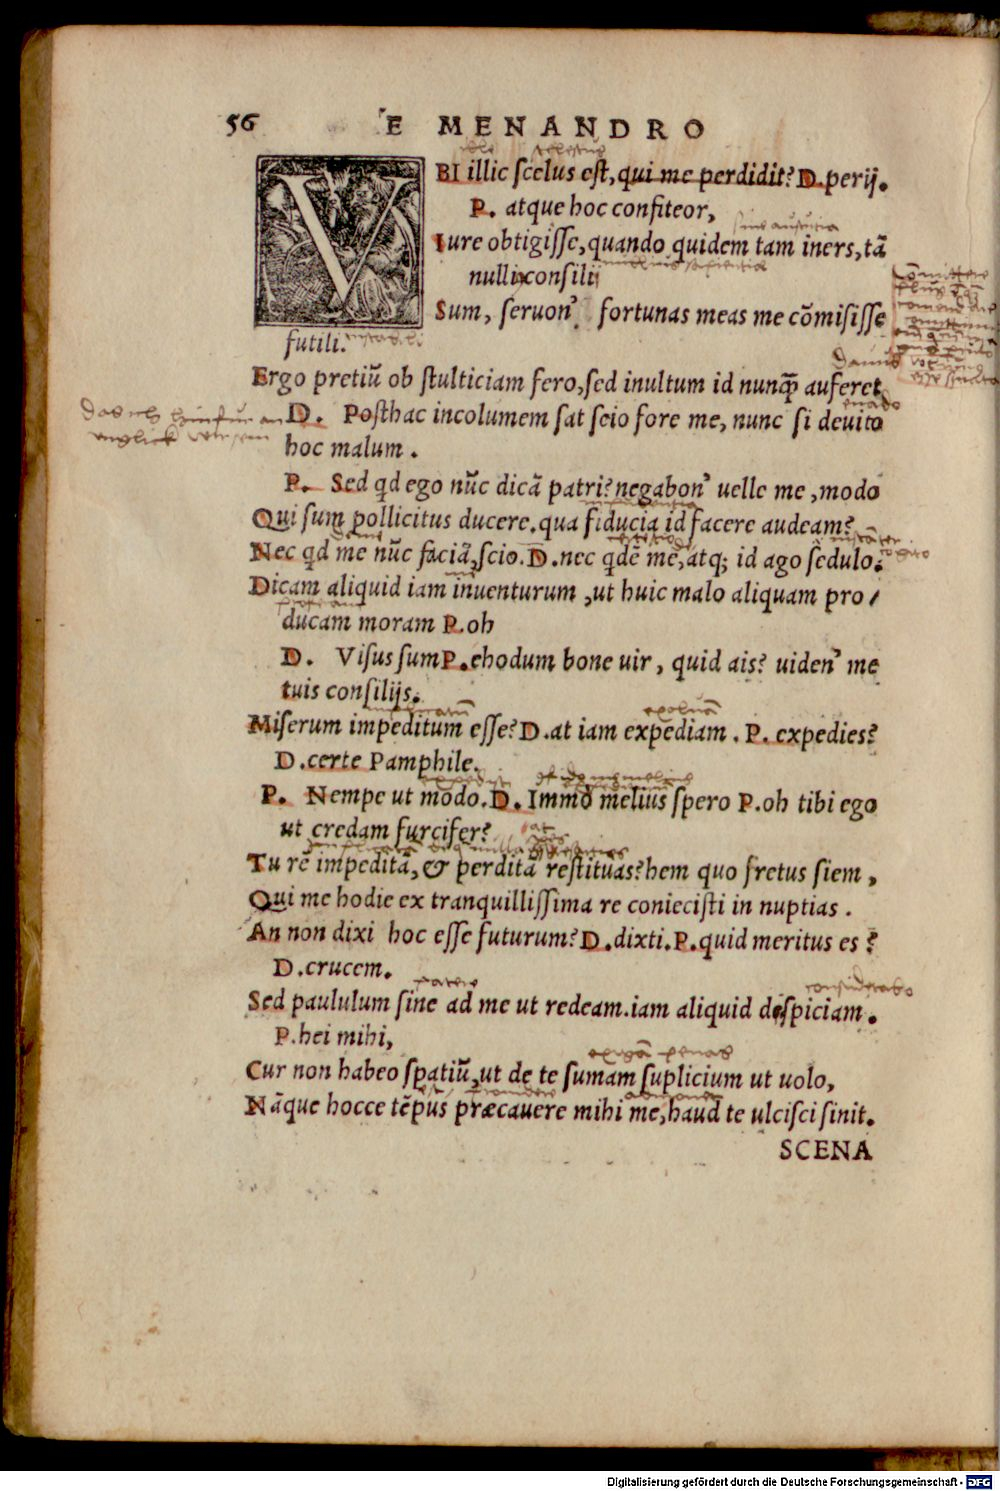 56 E MENANDRO
VBI illic scelus est, qui me perdidit? D. perij.
P. atque hoc confiteor,
Iure obtigisse, quando quidem tam iners, tā
nulli consilij
Sum, seruon' fortunas meas me cōmisisse
futili.
Ergo pretiū ob stulticiam fero, sed inultum id nunq̄ auferet
D. Posthac incolumem sat scio fore me, nunc si deuito
hoc malum.
P. Sed qd ego nūc dicā patri? negabon' uelle me, modo
Qui sum pollicitus ducere. qua fiducia id facere audeam?
Nec qd me nūc faciā, scio. D. nec qdē mē, atq; id ago sedulo.
Dicam aliquid iam inuenturum, ut huic malo aliquam pro/
ducam moram P. oh
D. Visus sum P. ehodum bone uir, quid ais? uiden' me
tuis consilijs.
Miserum impeditum esse? D. at iam expediam. P. expedies?
D. certe Pamphile.
P. Nempe ut modo. D. Immo melius spero P. oh tibi ego
ut credam furcifer?
Tu rē impeditā, & perditā restituas? hem quo fretus siem,
Qui me hodie ex tranquillissima re coniecisti in nuptias.
An non dixi hoc esse futurum? D. dixti. P. quid meritus es?
D. crucem.
Sed paululum sine ad me ut redeam. iam aliquid despiciam.
P. hei mihi,
Cur non habeo spatiū, ut de te sumam suplicium ut uolo,
Nāque hocce tēpus præcauere mihi me, haud te ulcisci sinit.
SCENA
Digitalisierung gefördert durch die Deutsche Forschungsgemeinschaft - DFG